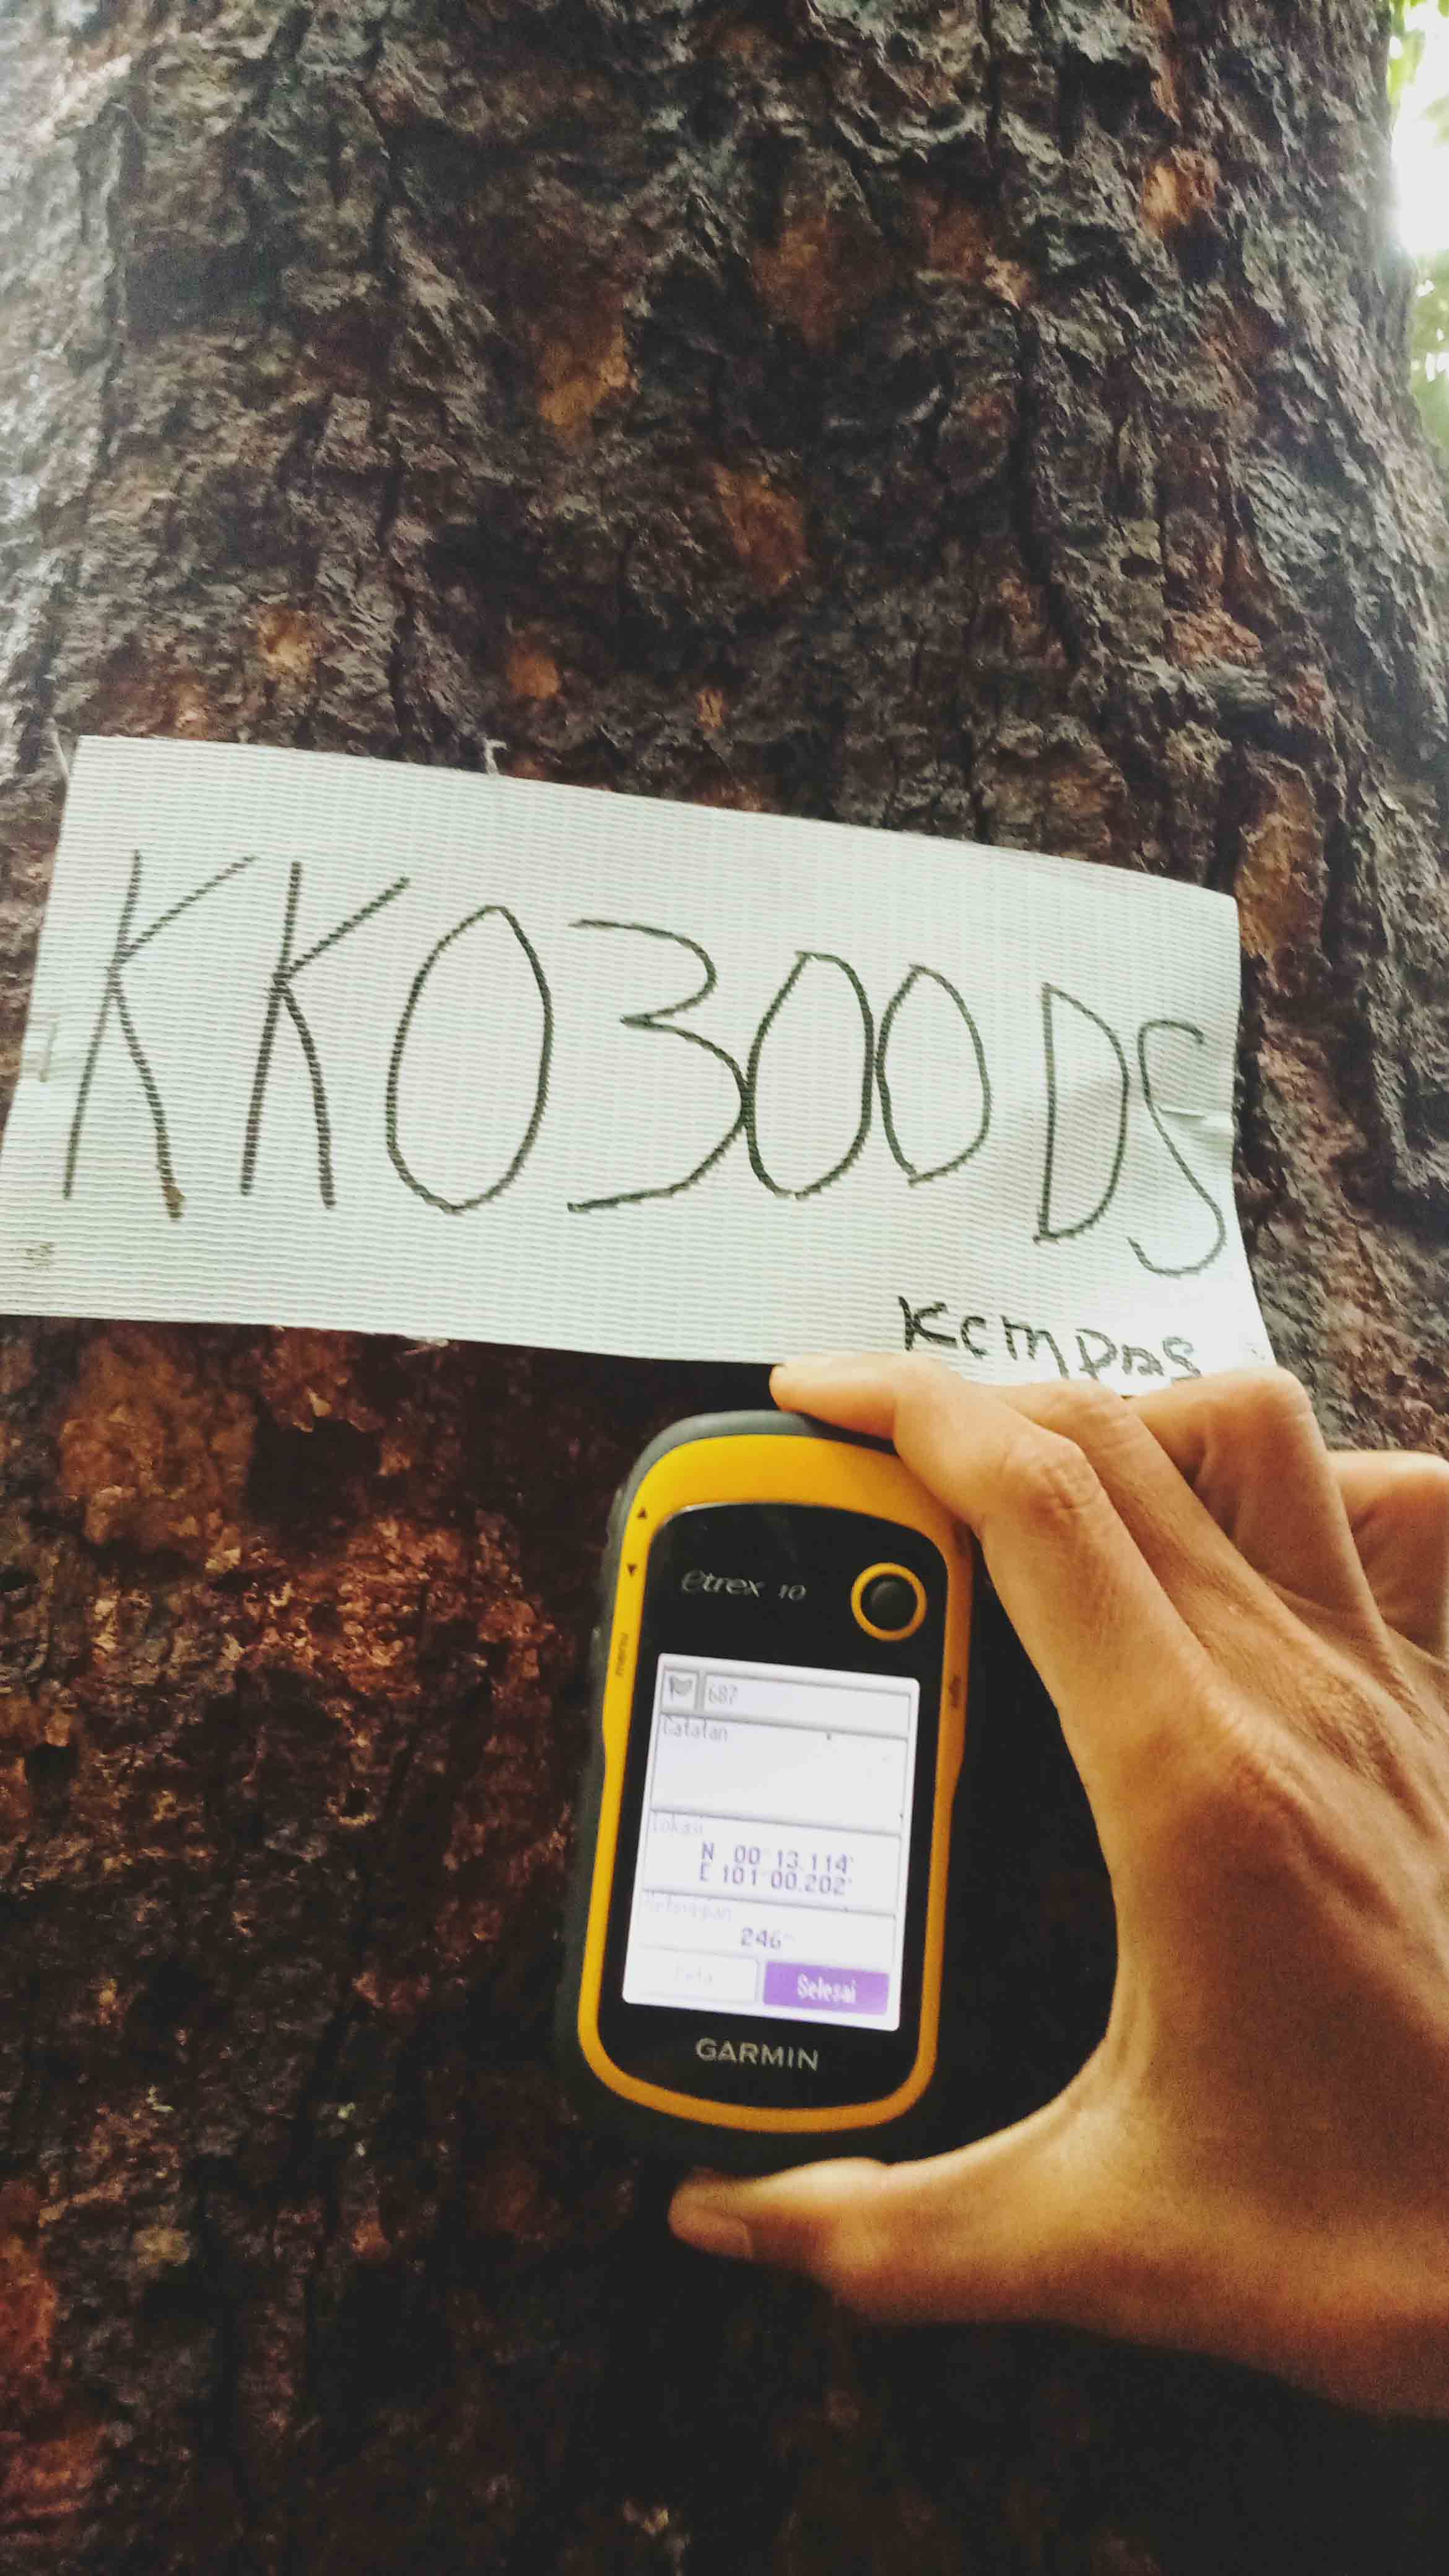 KK0300DS
Kempas
etrex 10
menu
687
Catatan
Lokasi
N 00 13.114'
E 101 00.202'
Ketinggian
246
Peta
Selesai
GARMIN